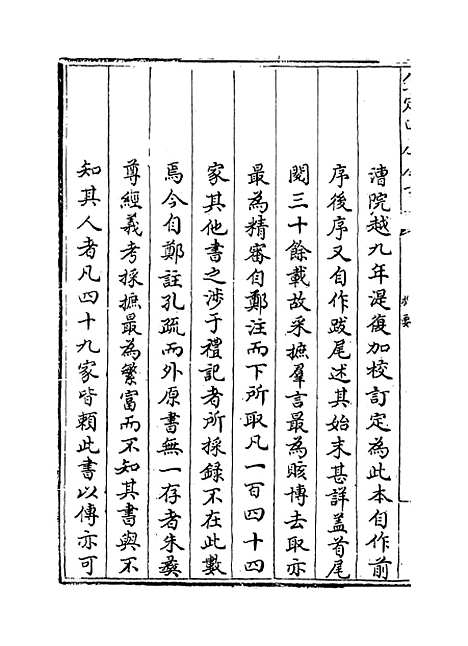 漕院越九年湜復加校訂定為此本自作前
序後序又自作跋尾述其始末甚詳盖首尾
閱三十餘載故采摭羣言最為賅博去取亦
最為精審自鄭注而下所取凡一百四十四
家其他書之涉于禮記者所採録不在此數
焉今自鄭註孔疏而外原書無一存者朱彞
尊經義考採摭最為繁富而不知其書與不
知其人者凡四十九家皆頼此書以傳亦可